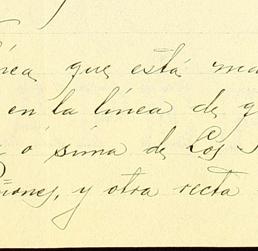 nea que está ma
en la línea de g
ó sima de Los
ñones, y otra recta